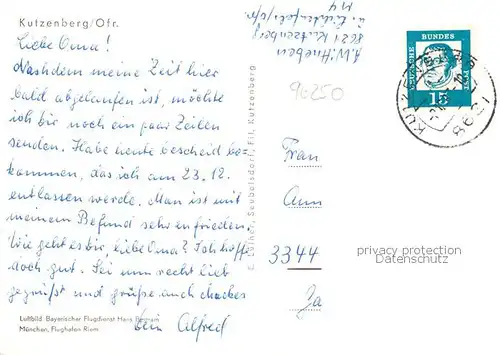 Kutzenberg/Ofr.
Liebe Oma!
Nachdem meine Zeit hier
bald abgelaufen ist, möchte
ich dir noch ein paar Zeilen
senden. Habe heute bescheid be-
kommen, das ich am 23.12.
entlassen werde. Man ist mit
meinem Befund sehr zufrieden.
Wie geht es dir, liebe Oma? Ich hoffe
doch gut. Sei nun recht lieb
gegrüßt und grüße auch
dein Alfred
Luftbild Bayerischer Flugdienst Hans Bertram
München, Flughafen Riem
Seubelsdorf, Fil. Kutzenberg
A. Wittneben
8621 Kutzenberg
M4
96250
DEUTSCHE BUNDES POST
15
8621
Frau
Ann
3344
privacy protection
Datenschutz